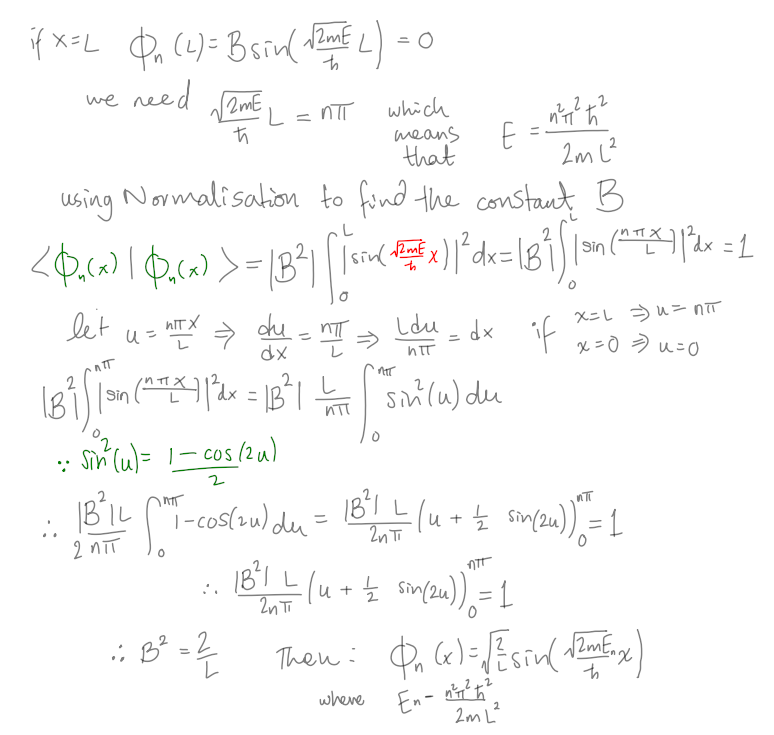 if x=L ϕₙ(L)=B sin(√(2mE)/ħ L) = 0
we need √(2mE)/ħ L = nπ which means that E = n²π²ħ²/2mL²
using Normalisation to find the constant B
<ϕₙ(x)|ϕₙ(x)> = |B²| ∫₀ᴸ |sin(√(2mE)/ħ x)|² dx = |B²| ∫₀ᴸ |sin(nπx/L)|² dx = 1
let u = nπx/L ⇒ du/dx = nπ/L ⇒ Ldu/nπ = dx if x=L ⇒ u=nπ x=0 ⇒ u=0
|B²| ∫₀^(nπ) |sin(nπx/L)|² dx = |B²| L/nπ ∫₀^(nπ) sin²(u) du
∵ sin²(u) = (1-cos(2u))/2
∴ |B²|L/2nπ ∫₀^(nπ) 1-cos(2u) du = |B²|L/2nπ (u + 1/2 sin(2u))₀^(nπ) = 1
∴ |B²|L/2nπ (u + 1/2 sin(2u))₀^(nπ) = 1
∴ B² = 2/L Then: ϕₙ(x) = √(2/L) sin(√(2mEₙ)/ħ x)
where Eₙ - n²π²ħ²/2mL²